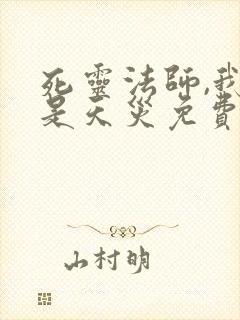 死靈法師,我
是天災免費
山村明